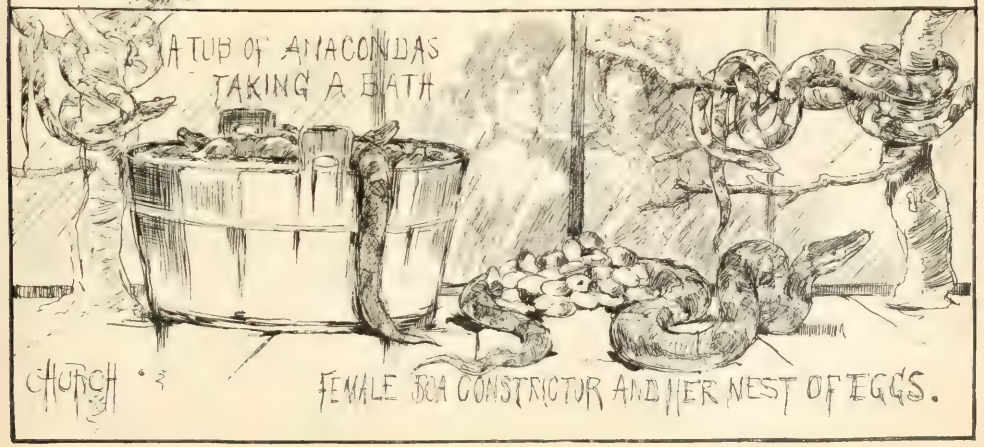 A TUB OF ANACONDAS
TAKING A BATH
CHURCH
FEMALE BOA CONSTRICTOR AND HER NEST OF EGGS.